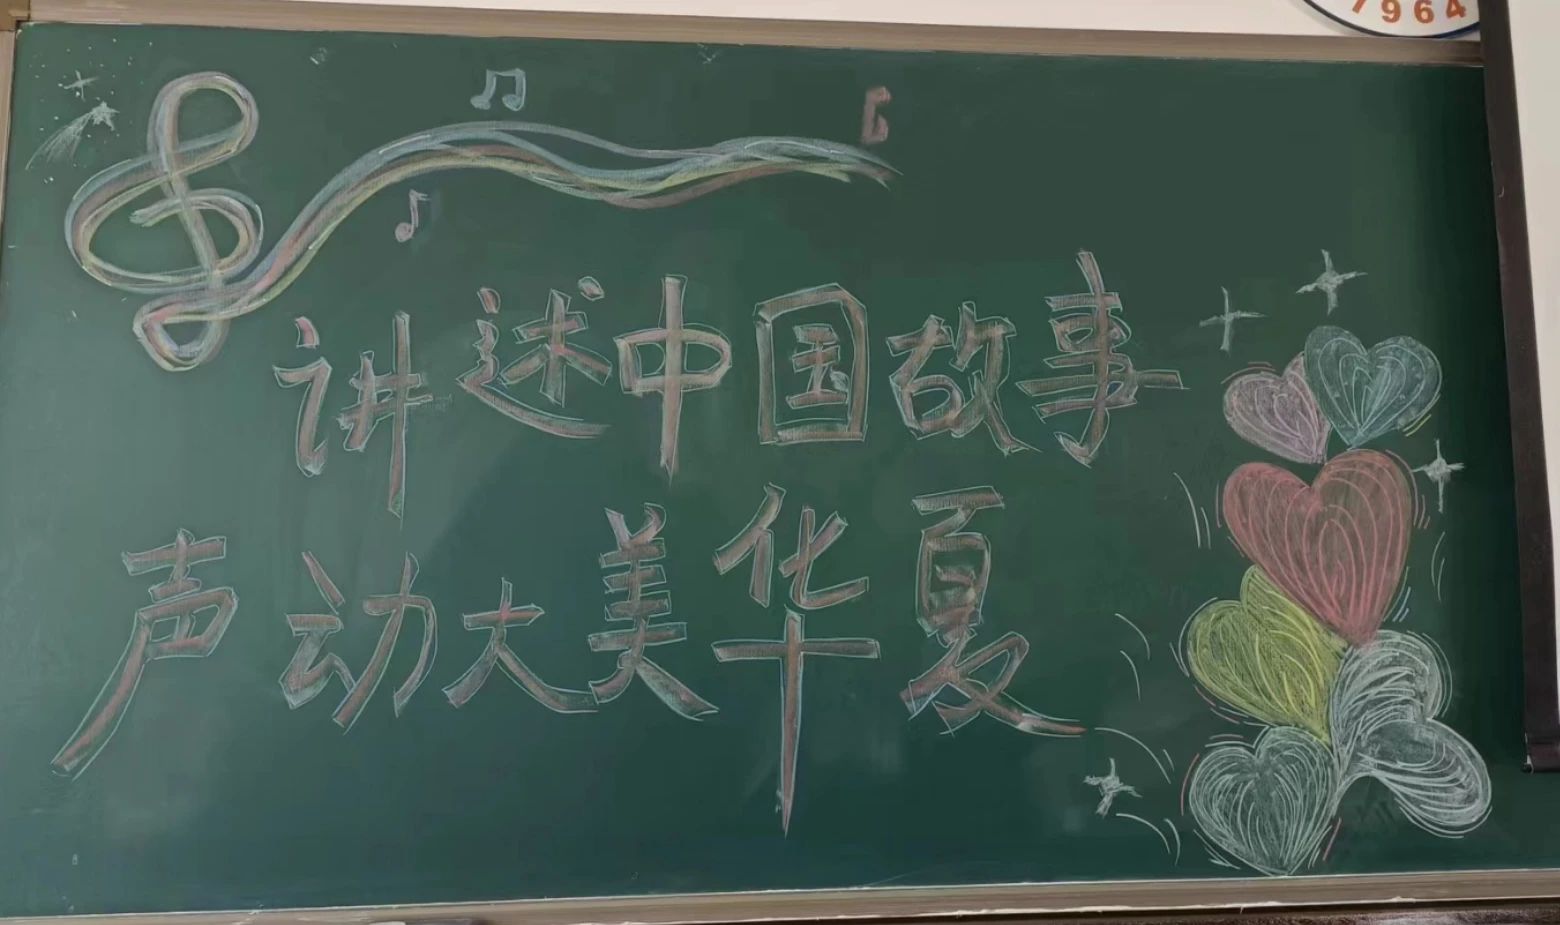 7964
讲述中国故事
声动大美华夏